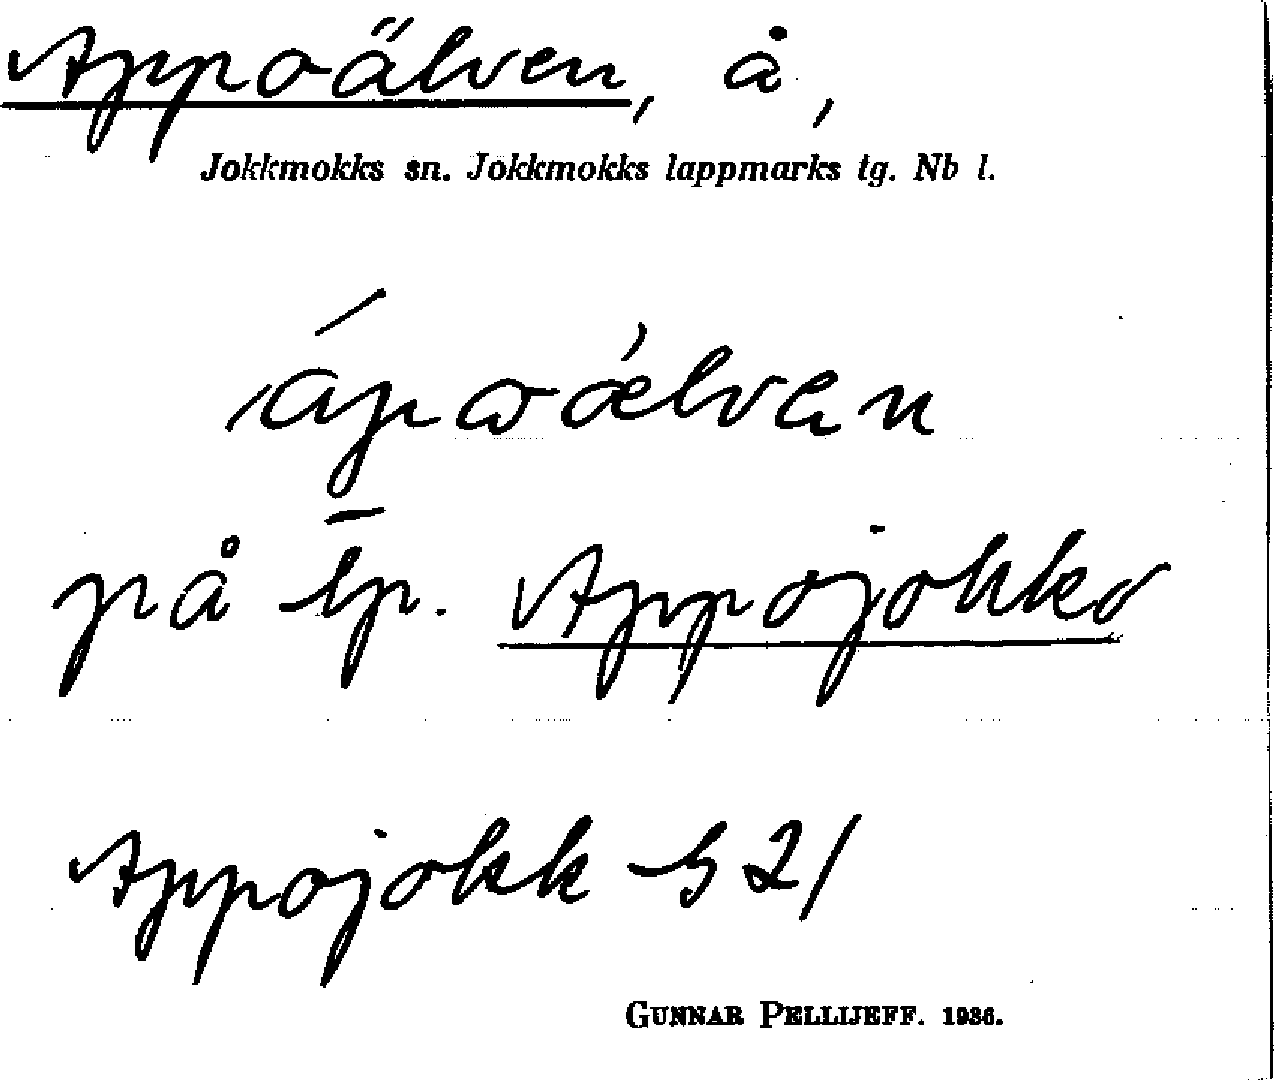 Appoälven, å,
Jokkmokks sn. Jokkmokks lappmarks tg. Nb l.
ápωælvan
på lp. Appojokko
Appojokk S 21
GUNNAR PELLIJEFF. 1936.